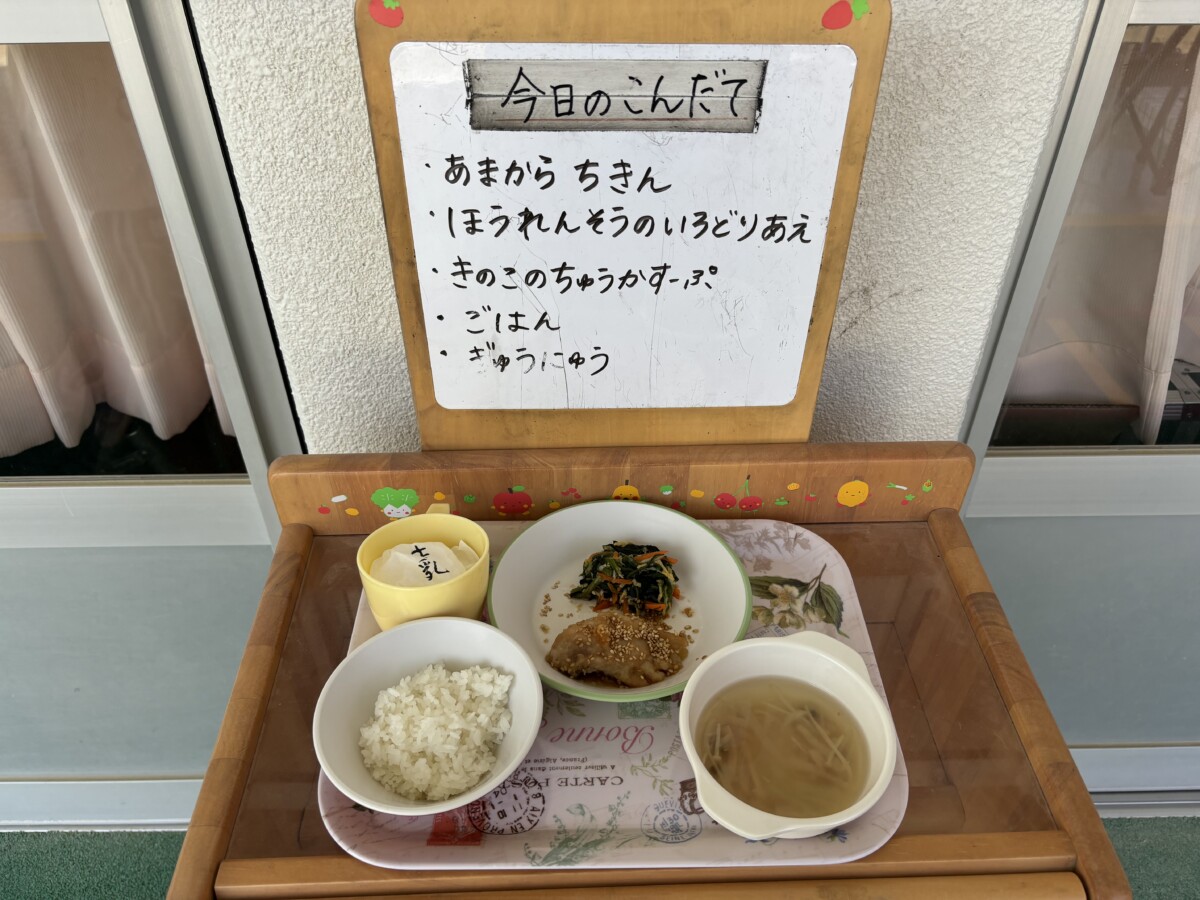 今日のこんだて
・あまから ちきん
・ほうれんそうのいろどりあえ
・きのこのちゅうかすーぷ
・ごはん
・ぎゅうにゅう
牛乳
Bonne
CARTE POS